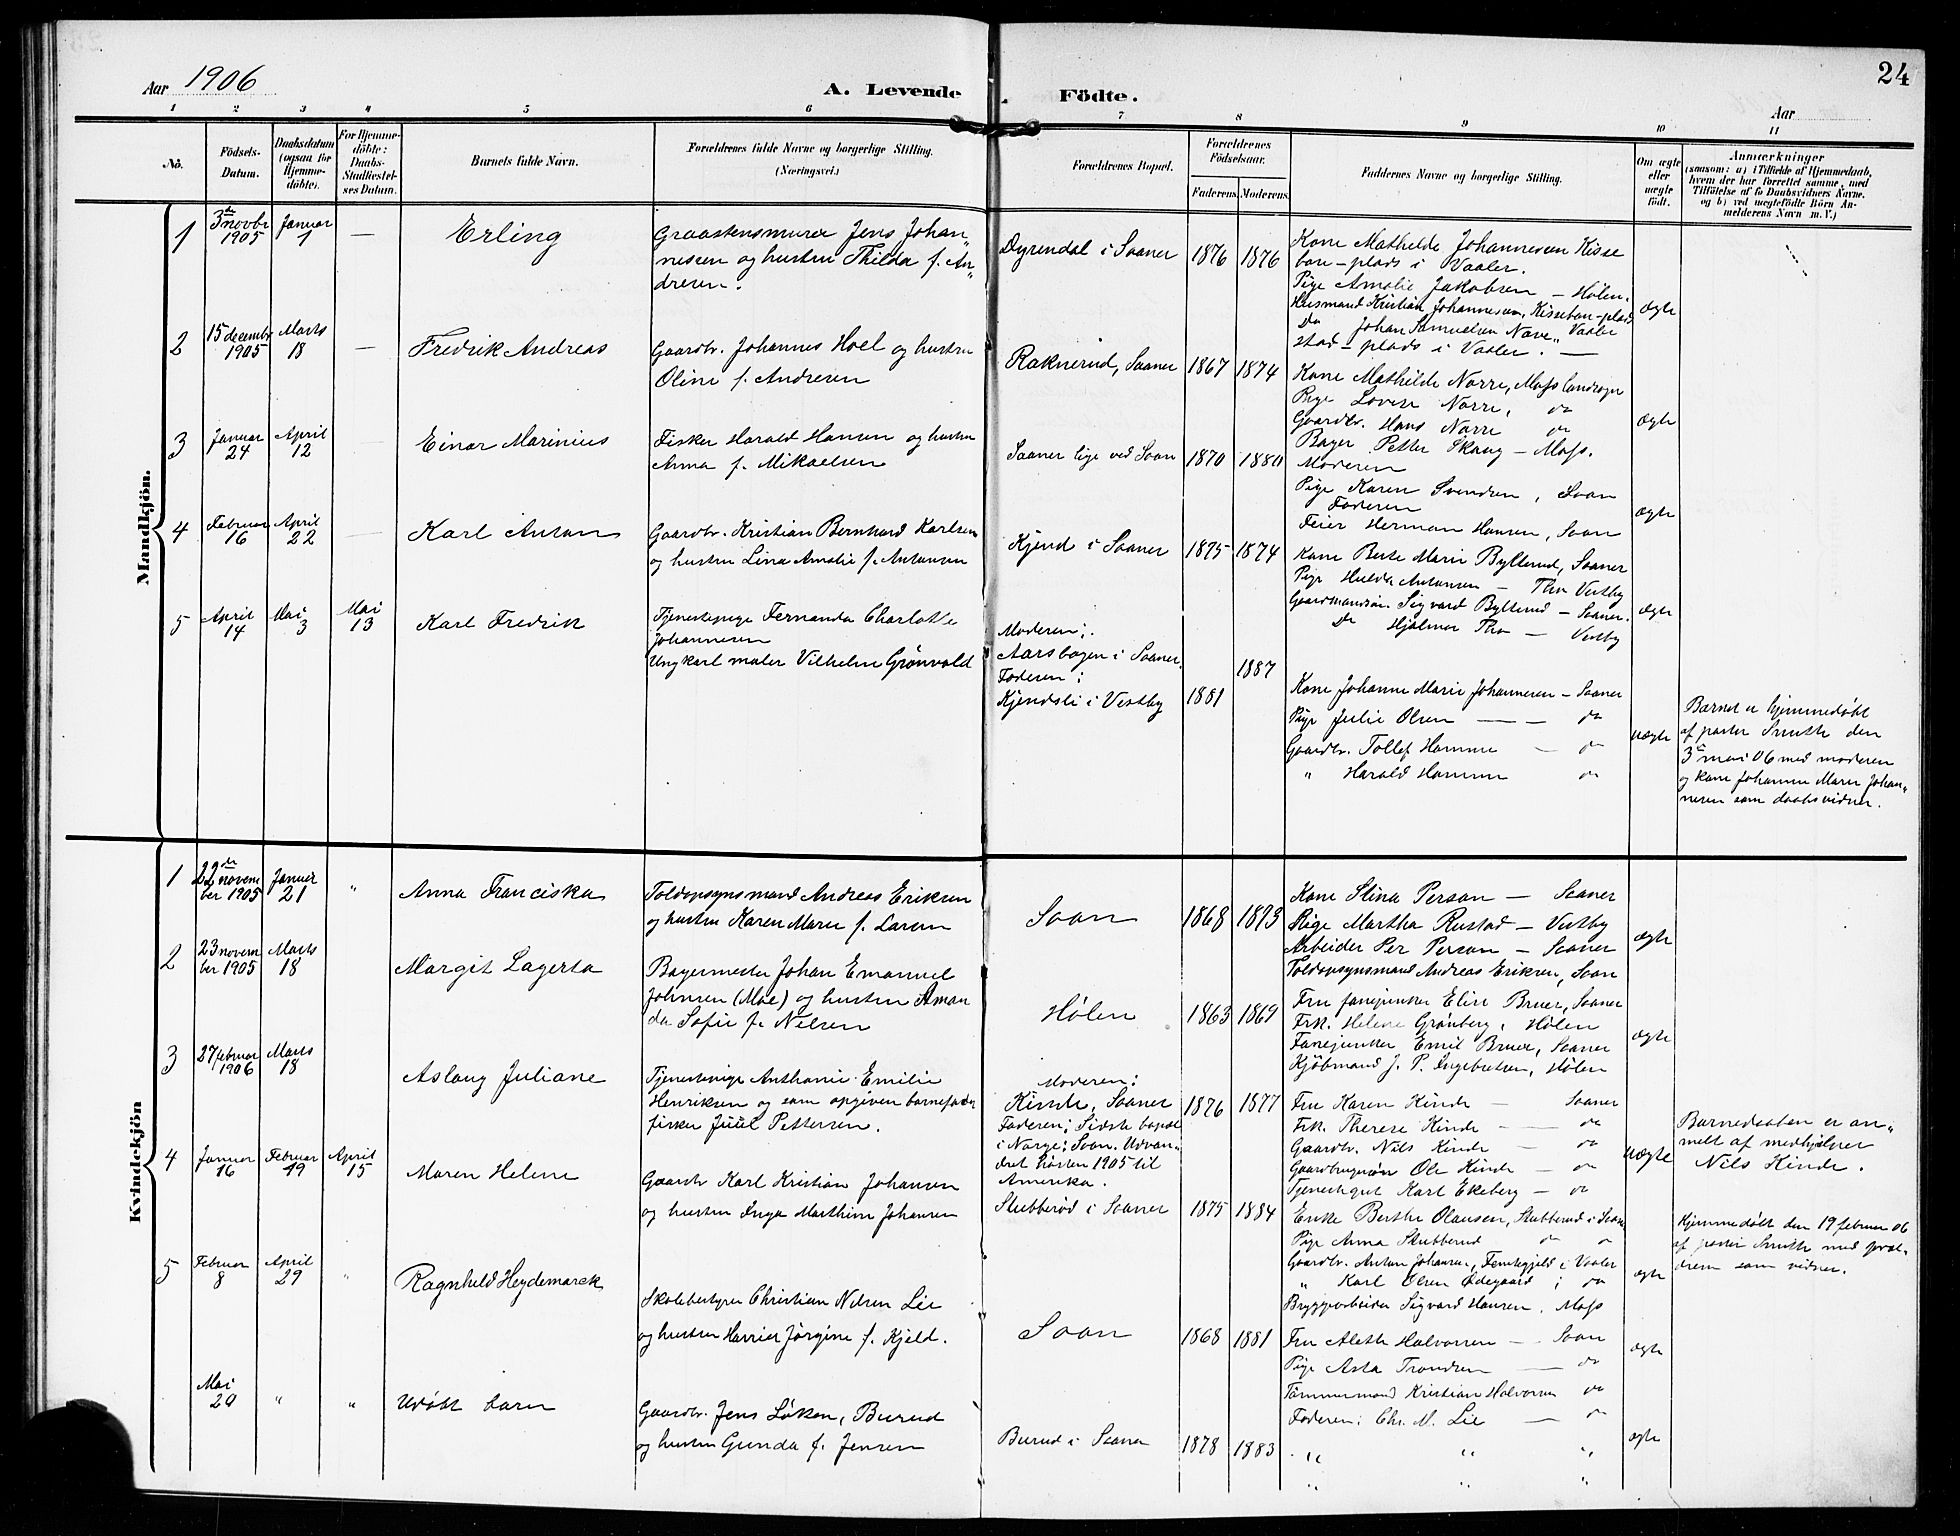 24
Aar 1906
A. Levende
Födte.
Aar
1 2 3 4 5 6 7 8 9 10 11
No.
Födsels-
Datum.
Daabsdatum
(ogsaa for
Hjemme-
döbte).
For Hjemme-
döbte:
Daabs-
Stadfæstel-
ses Datum.
Barnets fulde Navn.
Forældrenes fulde Navne og borgerlige Stilling.
(Næringsvei.)
Forældrenes Bopæl.
Forældrenes
Födselsaar.
Faderens. Moderens.
Faddernes Navne og borgerlige Stilling.
Om ægte
eller
uægte
födt.
Anmærkninger
(saasom: a) i Tilfælde af Hjemmedaab,
hvem der har forrettet samme, med
Tilföielse af to Daabsvidners Navne.
og b) ved uægtefödte Börn An-
melderens Navn m. V.)
Mandkjön.
1
3de novbr
1905
Januar
1
—
Erling
Graastensmurer Jens Johan„
nessen og hustru Thilda f. An„
dresen.
Dyrendal i Saaner
1876
1876
Kone Mathilde Johannessen Kisse
bon-plads i Vaaler.
Pige Amalie Jakobsen — Hølen.
Husmand Kristian Johannessen, Kissebon-plads
Do Johan Samuelsen Nave„ Vaaler
stad-plads i Vaaler. —
ægte
2
15 decembr
1905
Marts
18
—
Fredrik Andreas
Gaardbr. Johannes Hoel og hustru
Oline f. Andresen
Raknerud, Saaner
1867
1874
Kone Mathilde Norre, Moss landsogn
Pige Lovise Norre, do
Gaardbr. Hans Norre do
Bager Petter Skaug — Moss.
ægte
3
Januar
24
April
12
Einar Marinius
Fisker Harald Hansen og hustru
Anna f. Mikaelsen
Saaner lige ved Soon
1870
1880
Moderen
Pige Karen Svendsen, Soon
Faderen
Feier Herman Hansen, Soon
ægte
4
Februar
16
April
22
Karl Anton
Gaardbr. Kristian Bernhard Karlsen
og hustru Lina Amalie f. Antonsen
Kjend i Saaner
1875
1874
Kone Berte Marie Bylterud, Saaner
Pige Hulda Antonsen — Thon Vestby
Gaardmandsøn Sigvard Bylterud — Saaner.
Do Hjalmar Thon — Vestby
ægte
5
April
14
Mai
3
Mai
13
Karl Fredrik
Tjenestepige Fernanda Charlotte
Johannesen
Ungkarl maler Vilhelm Grønvold
Moderen:
Aarsbogen i Saaner.
Faderen:
Kjendsli i Vestby
1881
1887
Kone Johanne Marie Johannesen — Saaner
Pige Julie Olsen — — do
Gaardbr. Tollef Hamme — do
" Harald Hamme do
uægte
Barnet er hjemmedøbt
af pastor Smith den
3de mai 06 med moderen
og kone Johanne Marie Johan„
nesen som daabsvidner.
Kvindekjön
1
22de novem
ber 1905
Januar
21
"
Anna Franciska
Toldopsynsmand Andreas Eriksen
og hustru Karen Marie f. Larsen
Soon
1868
1873
Kone Stina Person — Saaner
Pige Martha Rustad — Vestby
Arbeider Per Person — Saaner
Toldopsynsmand Andreas Eriksen, Soon
ægte
2
23 novem
ber 1905
Marts
18
Margit Lagerta
Bagermester Johan Emanuel
Johnsen (Moe) og hustru Aman
da Sofie f. Nilsen
Hølen
1863
1869
Fru fanejunker Elise Bruer, Saaner
Frk. Helene Grønberg, Hølen
Fanejunker Emil Bruer, Saaner
Kjøbmand J. P. Ingebretsen, Hølen
ægte
3
27 februar
1906
Marts
18
Aslaug Juliane
Tjenestepige Anthonie Emilie
Henriksen og som opgiven barnefader
fisker Juul Pettersen.
Moderen:
Kinde, Saaner
Faderen: Sidste bopæl
i Norge: Soon. Udvan„
dret høsten 1905 til
Amerika.
1876
1877
Fru Karen Kinde — Saaner
Frk. Therese Kinde — do
Gaardbr. Nils Kinde — do
Gaardbrugersøn Ole Kinde — do
Tjenestegut Karl Ekeberg — do
uægte
Barnedaaben er an„
melt af medhjælper
Nils Kinde.
4
Januar
16
Februar
19
April
15
Maren Helene
Gaardbr Karl Kristian Johansen
og hustru Inga Marthine Johansen
Stubberød i Saaner
1875
1884
Enke Berthe Olausen, Stubberud i Saaner
Pige Anna Stubberud do
Gaardbr. Anton Johansen, i Vaaler
" Karl Olsen Ødegaard i do
Bryggearbeider Sigvard Hansen, Moss
ægte
Hjemmedøbt den 19 februar 06
af pastor Smith med foræl„
drene som vidner.
5
Februar
8
April
29
"
Ragnhild Heydemarck
Skolebestyrer Christian Nilsen Lie
og hustru Jørgine f. Kjeld.
Soon
1868
1881
Fru Aleth Halvorsen — Soon
Pige Asta Trondsen — do
Tømmermand Kristian Halvorsen do
Faderen: Chr. N. Lie — do
ægte
Mai
29
"
"
Udøbt barn
Gaardbr. Jens Løken, Burud
og hustru Gunda f. Jensen
Burud i Saaner
1878
1883
" " "
"
ægte